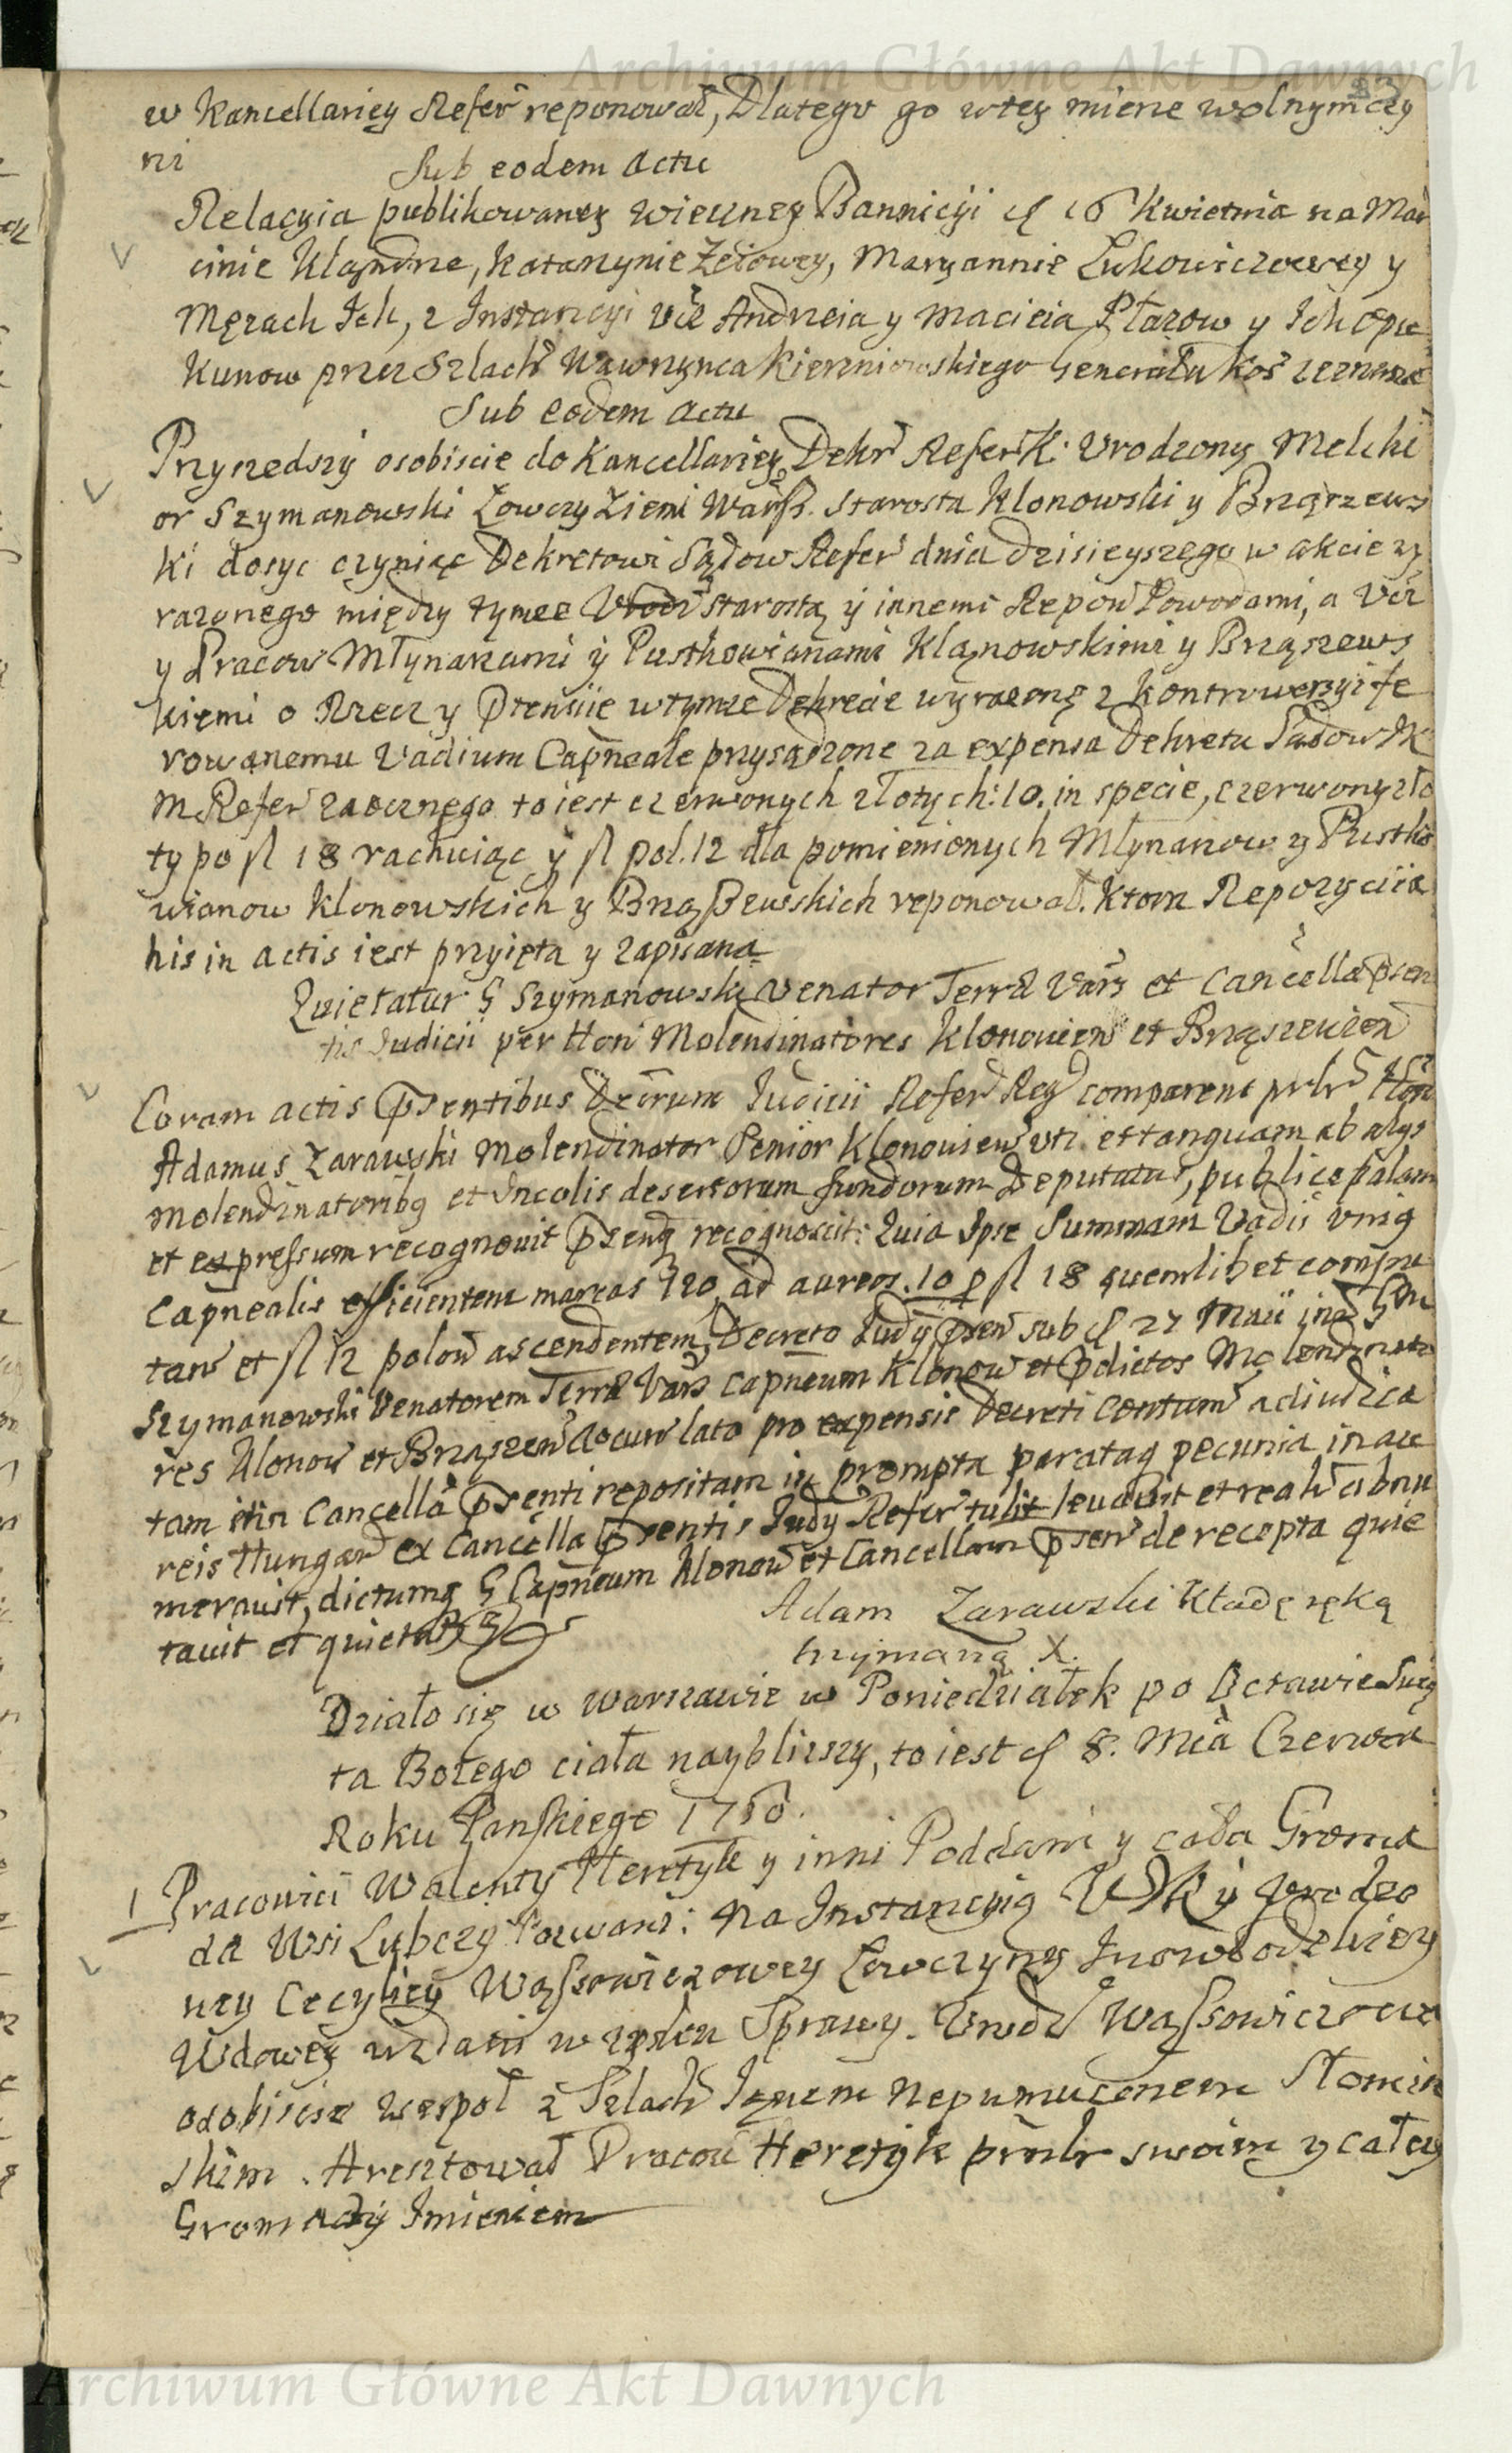 Archiwum Główne Akt Dawnych
w Kancellariey Referr reponował, Dlatego go wtey mierze wolnym czy
ni
Sub eodem actu
Relacyia publikowaney wieczney Bannicyi d 16 Kwietnia na Mar
cinie Kląndze, Katarzynie Zeiowey, Maryannie Lukowiczowey y
Męzach Ich, z Instancyi Ucz Andrzeia y Macieia Płazow y Ich Opie
kunow przez Szlach Wawrzynca Kierzniowskiego Generała KoR zeznana
Sub eodem actu
Przyszedszy osobiscie do Kancellariey Dekr Refer K: Urodzony Melchi
or Szymanowski Łowczy Ziemi Warss. Starosta Klonowski y Brząszews
ki dosyc czyniąc Dekretowi Sądow Refer dnia dzisieyszego w akcie wy
razonego między tymze Urodz Starostą y innemi Repow Powodami, a Ucz
y Pracow Młynarzami y Pustkowianami Kląnowskimi y Brząszews
kiemi o Rzecz y Ptensiie wtymze Dekrecie wyrazoną z kontrowersyi fe
rowanemu Vadium Capneale przysądzone za expensa Dekretu Sądow JK
M Refer zaocznego to iest czerwonych złotych: 10. in specie, czerwony zło
ty po fl 18 rachuiąc y fl pol. 12 dla pomienionych Młynarzow y Pustko
wianow Klonowskich y Brząszewskich reponował. Ktora Repozyciia
his in actis iest przyięta y zapisana
Quietatur G Szymanowski Venator Terrae Vars et Cancella psen
tis Judicii per Hon Molendinatores Klonovien et Brząszevien
Coram actis psentibus Decrum Judicii Refer Reg comparens prlr Hon
Adamus Zarawski Molendinator Senior Klonovien uti et tanquam ab alys
Molendinatoribq et Incolis desertorum fundorum Deputatus, publice palam
et expressum recognovit psenq recognoscit: Quia Ipse Summam Vadii unig
Capnealis efficientem marcas 120, ad aureos .10 p fl 18 quemlibet compu
tan et fl 12 polon ascendentem, Decreto Judy psen sub d 27 Maii int Gm
Szymanowski Venatorem Terrae Vars Capneum Klonow et pdictos Molendinato
res Klonov et Brząszew locuw lato pro expensis Decreti Contum adiudica
tam et in Cancella psenti repositam in prompta parataq pecunia in au
reis Hungar ex Cancella psentis Judy Refer tulit levavit et realr abnu
meravit, dictumq G Capneum Klonov et Cancellam psen de recepta quie
tavit et quietat
Adam Zarawski Kładę ręką
trzymaną X.
Działo się w Warszawie w Poniedziałek po Octawie Swię
ta Bożego ciała nayblizszy, to iest d 8. Mca Czerwca
Roku Panskiego 1750.
1 Pracowici Walenty Heretyk y inni Poddani y cała Groma
da Wsi Lubczy Pozwani: Na Instancyią UJK y Urodzo
ney Cecyliey Wąssowiczowey Łowczyny Inowłodzkiey
Wdowey wzdani w zysku Sprawy. Urodz Wąssowiczowa
osobiscie wespoł z Szlach Janem Nepumucenem Słomin
skim. Aresztował Pracow Heretyk prnlr swoim y całey
Gromady Imieniem
Archiwum Główne Akt Dawnych